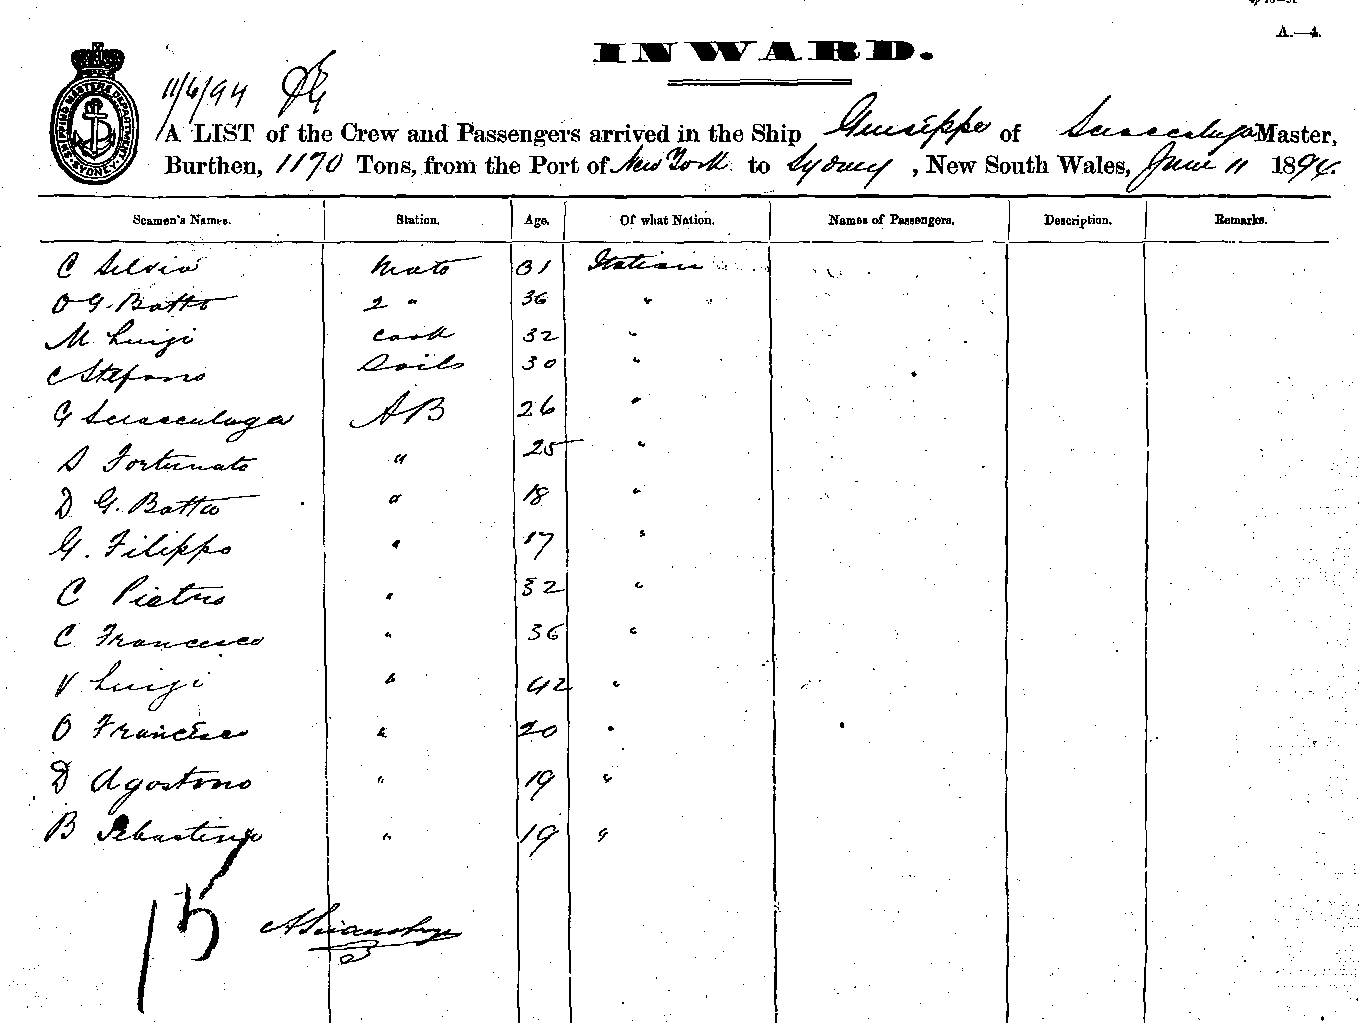 A.—4.
INWARD.
11/6/94
A LIST of the Crew and Passengers arrived in the Ship Guiseppe of Master,
Burthen, 1170 Tons, from the Port of New York to Sydney, New South Wales, June 11 1894.
Seamen's Names. Station. Age. Of what Nation. Names of Passengers. Description. Remarks.
C Silvio Mate 31 Italian
O G. Batto 2 " 36 "
M Luigi Cook 32 "
C Stefano Sails 30 "
G AB 26 "
S Fortunato " 25 "
D G. Batto " 18 "
G. Filippo " 17 "
C Pietro " 32 "
C Francesco " 36 "
V Luigi " 42 "
O Francesco " 20 "
D Agostono " 19 "
B Sebastino " 19 "
15
SHIPPING MASTERS DEPARTMENT SYDNEY